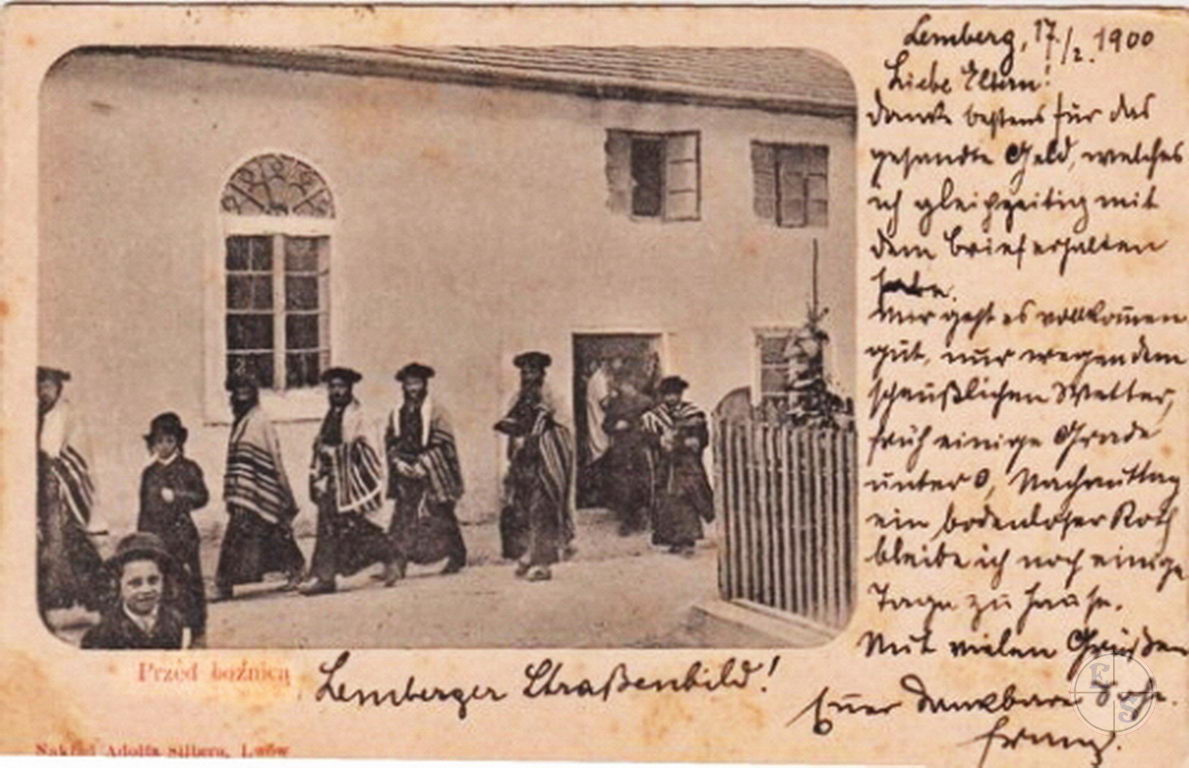 Lemberg, 17./2. 1900
Liebe Eltern!
Danke bestens für das
gesandte Geld, welches
ich gleichzeitig mit
dem Brief erhalten
habe.
Mir geht es vollkom̄en
gut, nur wegen dem
scheußlichen Wetter,
früh einige Grade
unter 0, Nachmittag
ein bodenloser Koth
bleibe ich noch einige
Tage zu Hause.
Mit vielen Grüßen
Euer dankbarer Sohn.
Franz.
Przed bożnicą
Lemberger Straßenbild!
Nakład Adolfa Silbera, Lwów